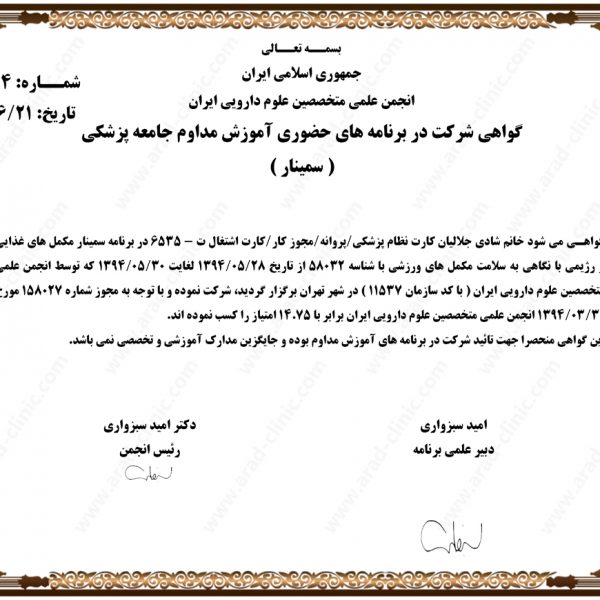 بسمه تعالی
جمهوری اسلامی ایران
انجمن علمی متخصصین علوم دارویی ایران
شماره: ۴
تاریخ: ۶/۲۱
گواهی شرکت در برنامه های حضوری آموزش مداوم جامعه پزشکی
( سمینار )
گواهی می شود خانم شادی جلالیان کارت نظام پزشکی/پروانه/مجوز کار/کارت اشتغال ت – ۶۵۳۵ در برنامه سمینار مکمل های غذایی
و رژیمی با نگاهی به سلامت مکمل های ورزشی با شناسه ۵۸۰۳۲ از تاریخ ۱۳۹۴/۰۵/۲۸ لغایت ۱۳۹۴/۰۵/۳۰ که توسط انجمن علمی
متخصصین علوم دارویی ایران ( با کد سازمان ۱۱۵۳۷) در شهر تهران برگزار گردید، شرکت نموده و با توجه به مجوز شماره ۱۵۸۰۲۷ مورخ
۱۳۹۴/۰۳/۳ انجمن علمی متخصصین علوم دارویی ایران برابر با ۱۴.۷۵ امتیاز را کسب نموده اند.
این گواهی منحصرا جهت تائید شرکت در برنامه های آموزش مداوم بوده و جایگزین مدارک آموزشی و تخصصی نمی باشد.
امید سبزواری
دبیر علمی برنامه
دکتر امید سبزواری
رئیس انجمن
www.arad-clinic.com